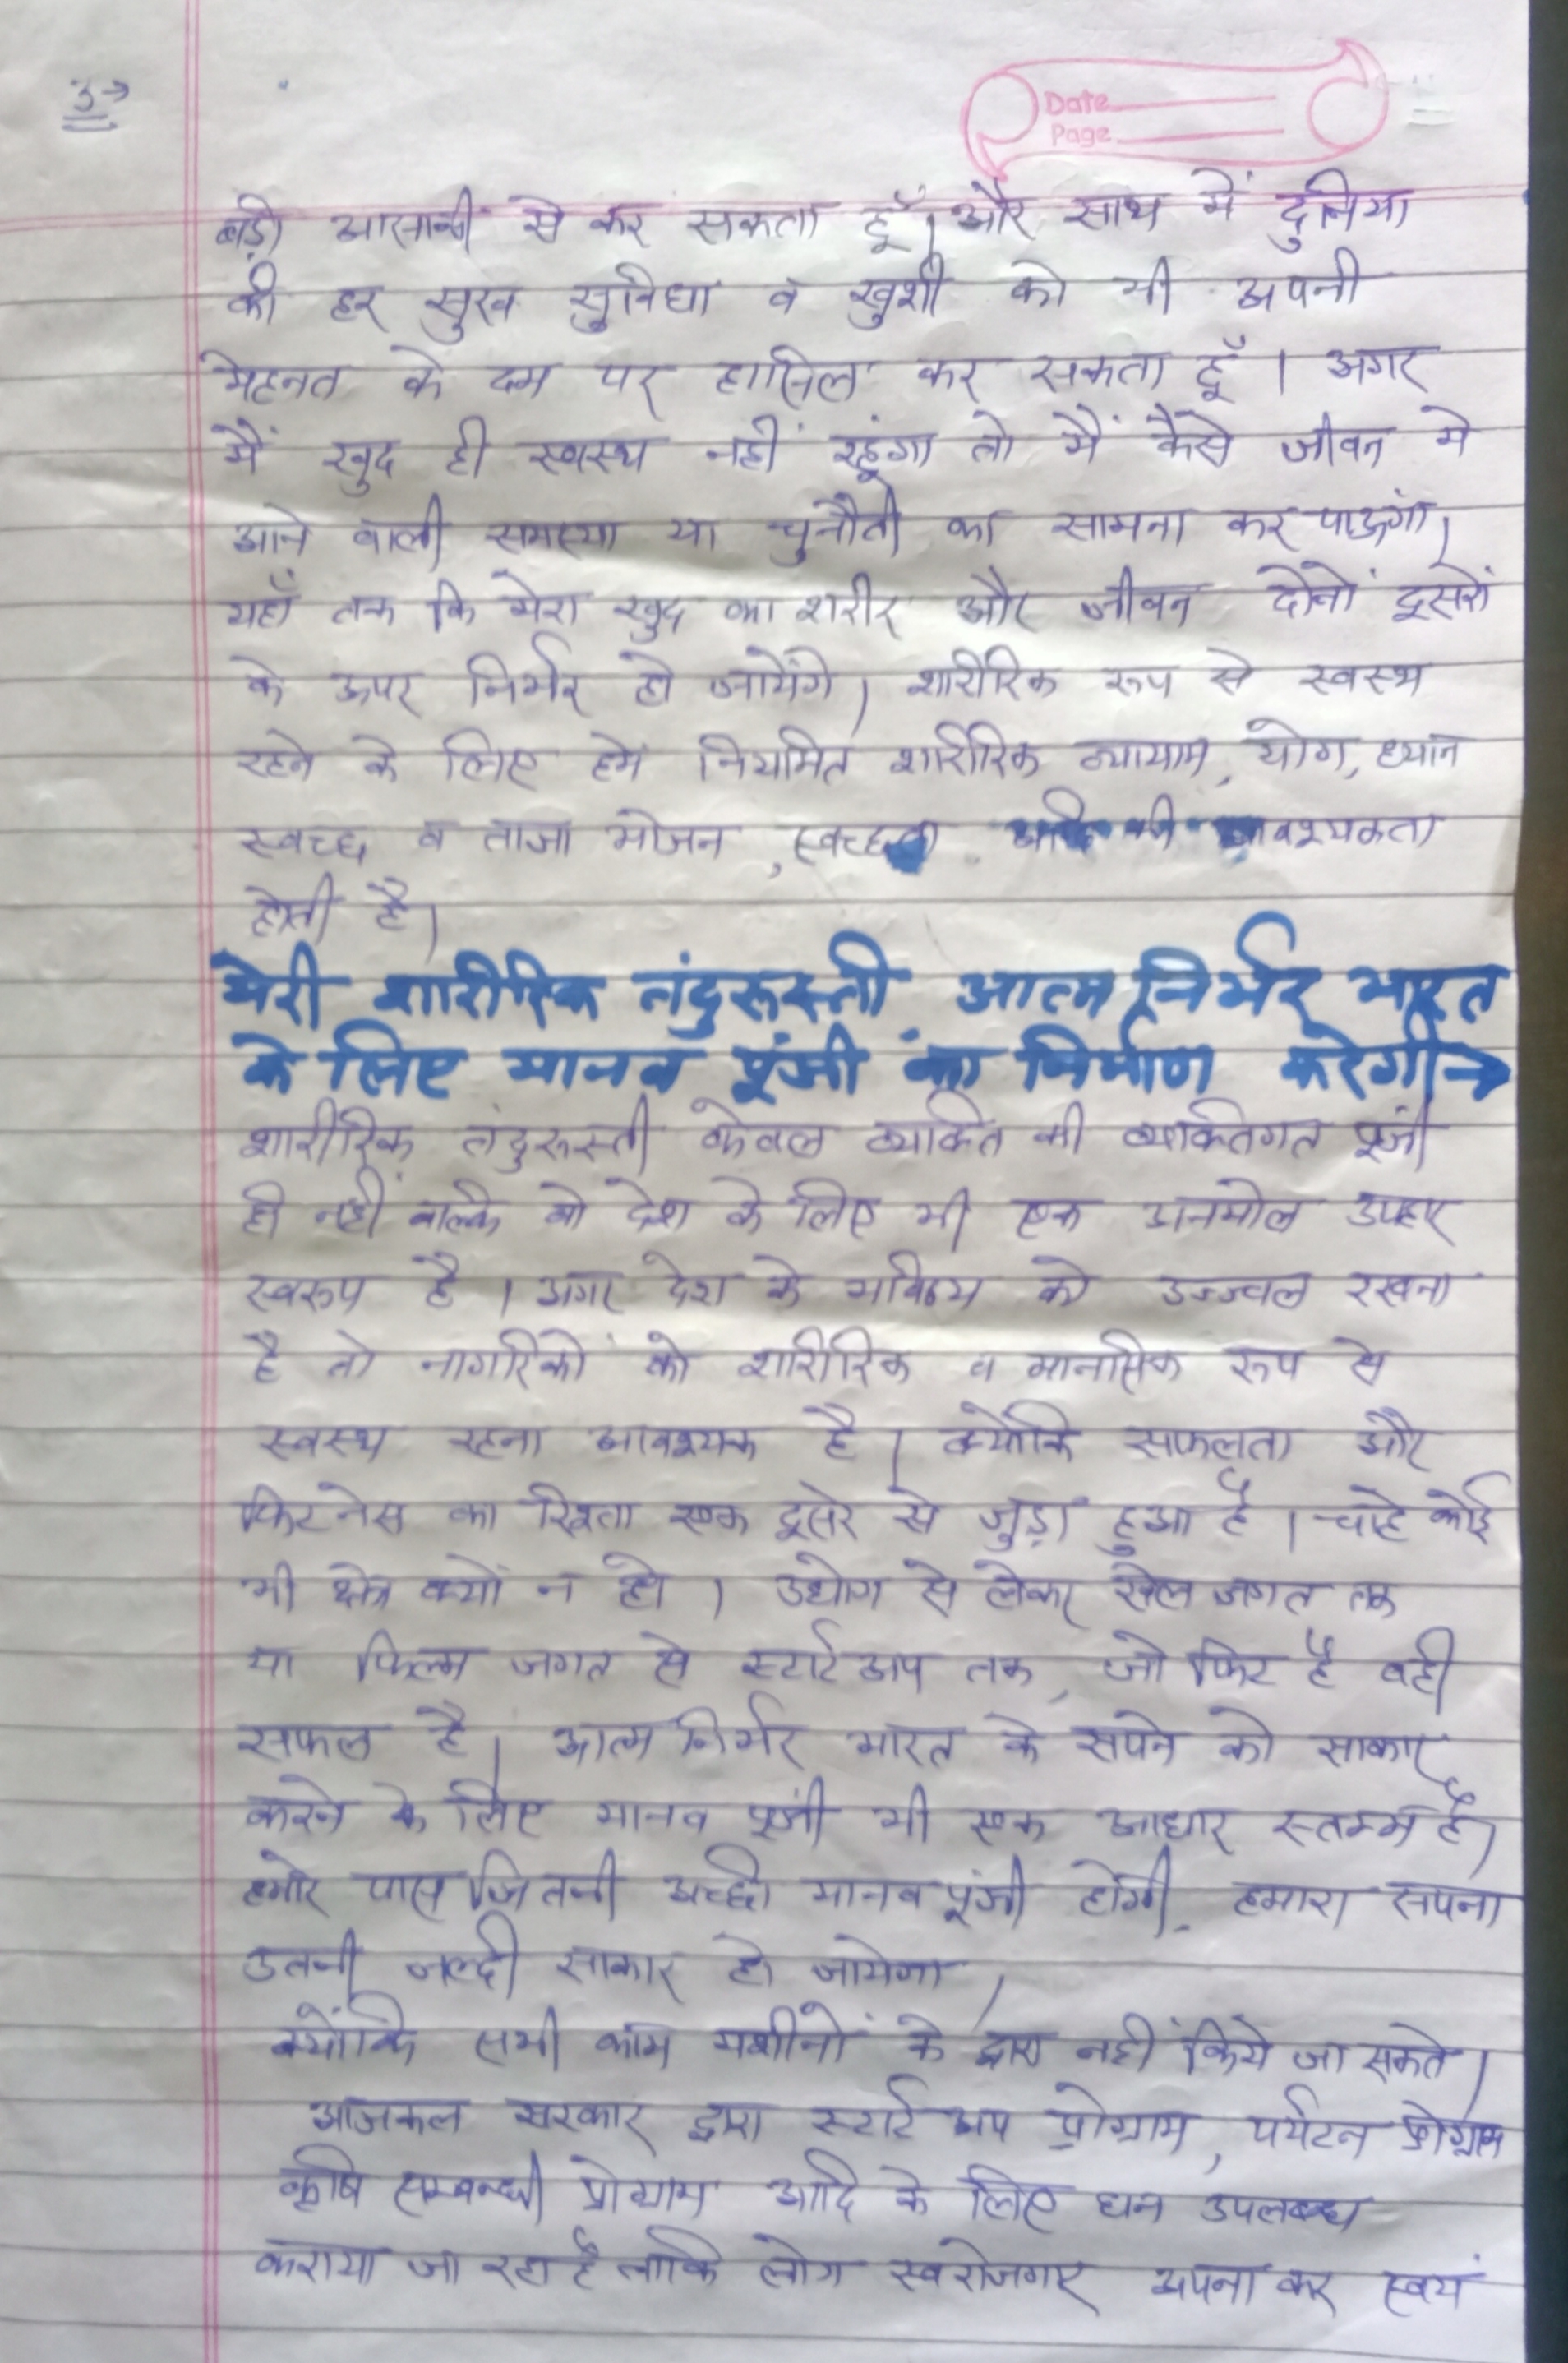 3→
Date
Page
बड़ी आसानी से कर सकता हूँ। और साथ में दुनिया
की हर सुख सुविधा व खुशी को भी अपनी
मेहनत के दम पर हासिल कर सकता हूँ। अगर
मैं खुद ही स्वस्थ नहीं रहूंगा तो मैं कैसे जीवन मे
आने वाली समस्या या चुनौती का सामना कर पाऊंगा।
यहाँ तक कि मेरा खुद का शरीर और जीवन दोनों दूसरों
के ऊपर निर्भर हो जायेंगे। शारीरिक रूप से स्वस्थ
रहने के लिए हमे नियमित शारीरिक व्यायाम, योग, ध्यान
स्वच्छ व ताजा भोजन, स्वच्छता आदि की आवश्यकता
होती है।
मेरी शारीरिक तंदुरूस्ती आत्म निर्भर भारत
के लिए मानव पूंजी का निर्माण करेगी→
शारीरिक तंदुरूस्ती केवल व्यक्ति की व्यक्तिगत पूंजी
ही नहीं बल्कि वो देश के लिए भी एक अनमोल उपहार
स्वरूप है। अगर देश के भविष्य को उज्ज्वल रखना
है तो नागरिकों को शारीरिक व मानसिक रूप से
स्वस्थ रहना आवश्यक है। क्योंकि सफलता और
फिटनेस का रिश्ता एक दूसरे से जुड़ा हुआ है। चाहे कोई
भी क्षेत्र क्यों न हो। उद्योग से लेकर खेल जगत तक
या फिल्म जगत से स्टार्ट अप तक, जो फिट है वही
सफल है। आत्म निर्भर भारत के सपने को साकार
करने के लिए मानव पूंजी भी एक आधार स्तम्भ है।
हमारे पास जितनी अच्छी मानव पूंजी होगी, हमारा सपना
उतनी जल्दी साकार हो जायेगा।
क्योंकि सभी काम मशीनों के द्वारा नहीं किये जा सकते।
आजकल सरकार द्वारा स्टार्ट अप प्रोग्राम, पर्यटन प्रोग्राम
कृषि सम्बन्धी प्रोग्राम आदि के लिए धन उपलब्ध
कराया जा रहा है ताकि लोग स्वरोजगार अपना कर स्वयं